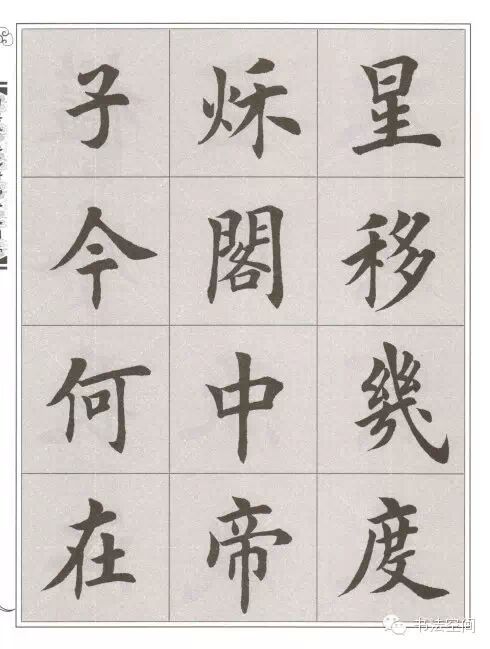 星移幾度
秌閣中帝
子今何在
书法空间